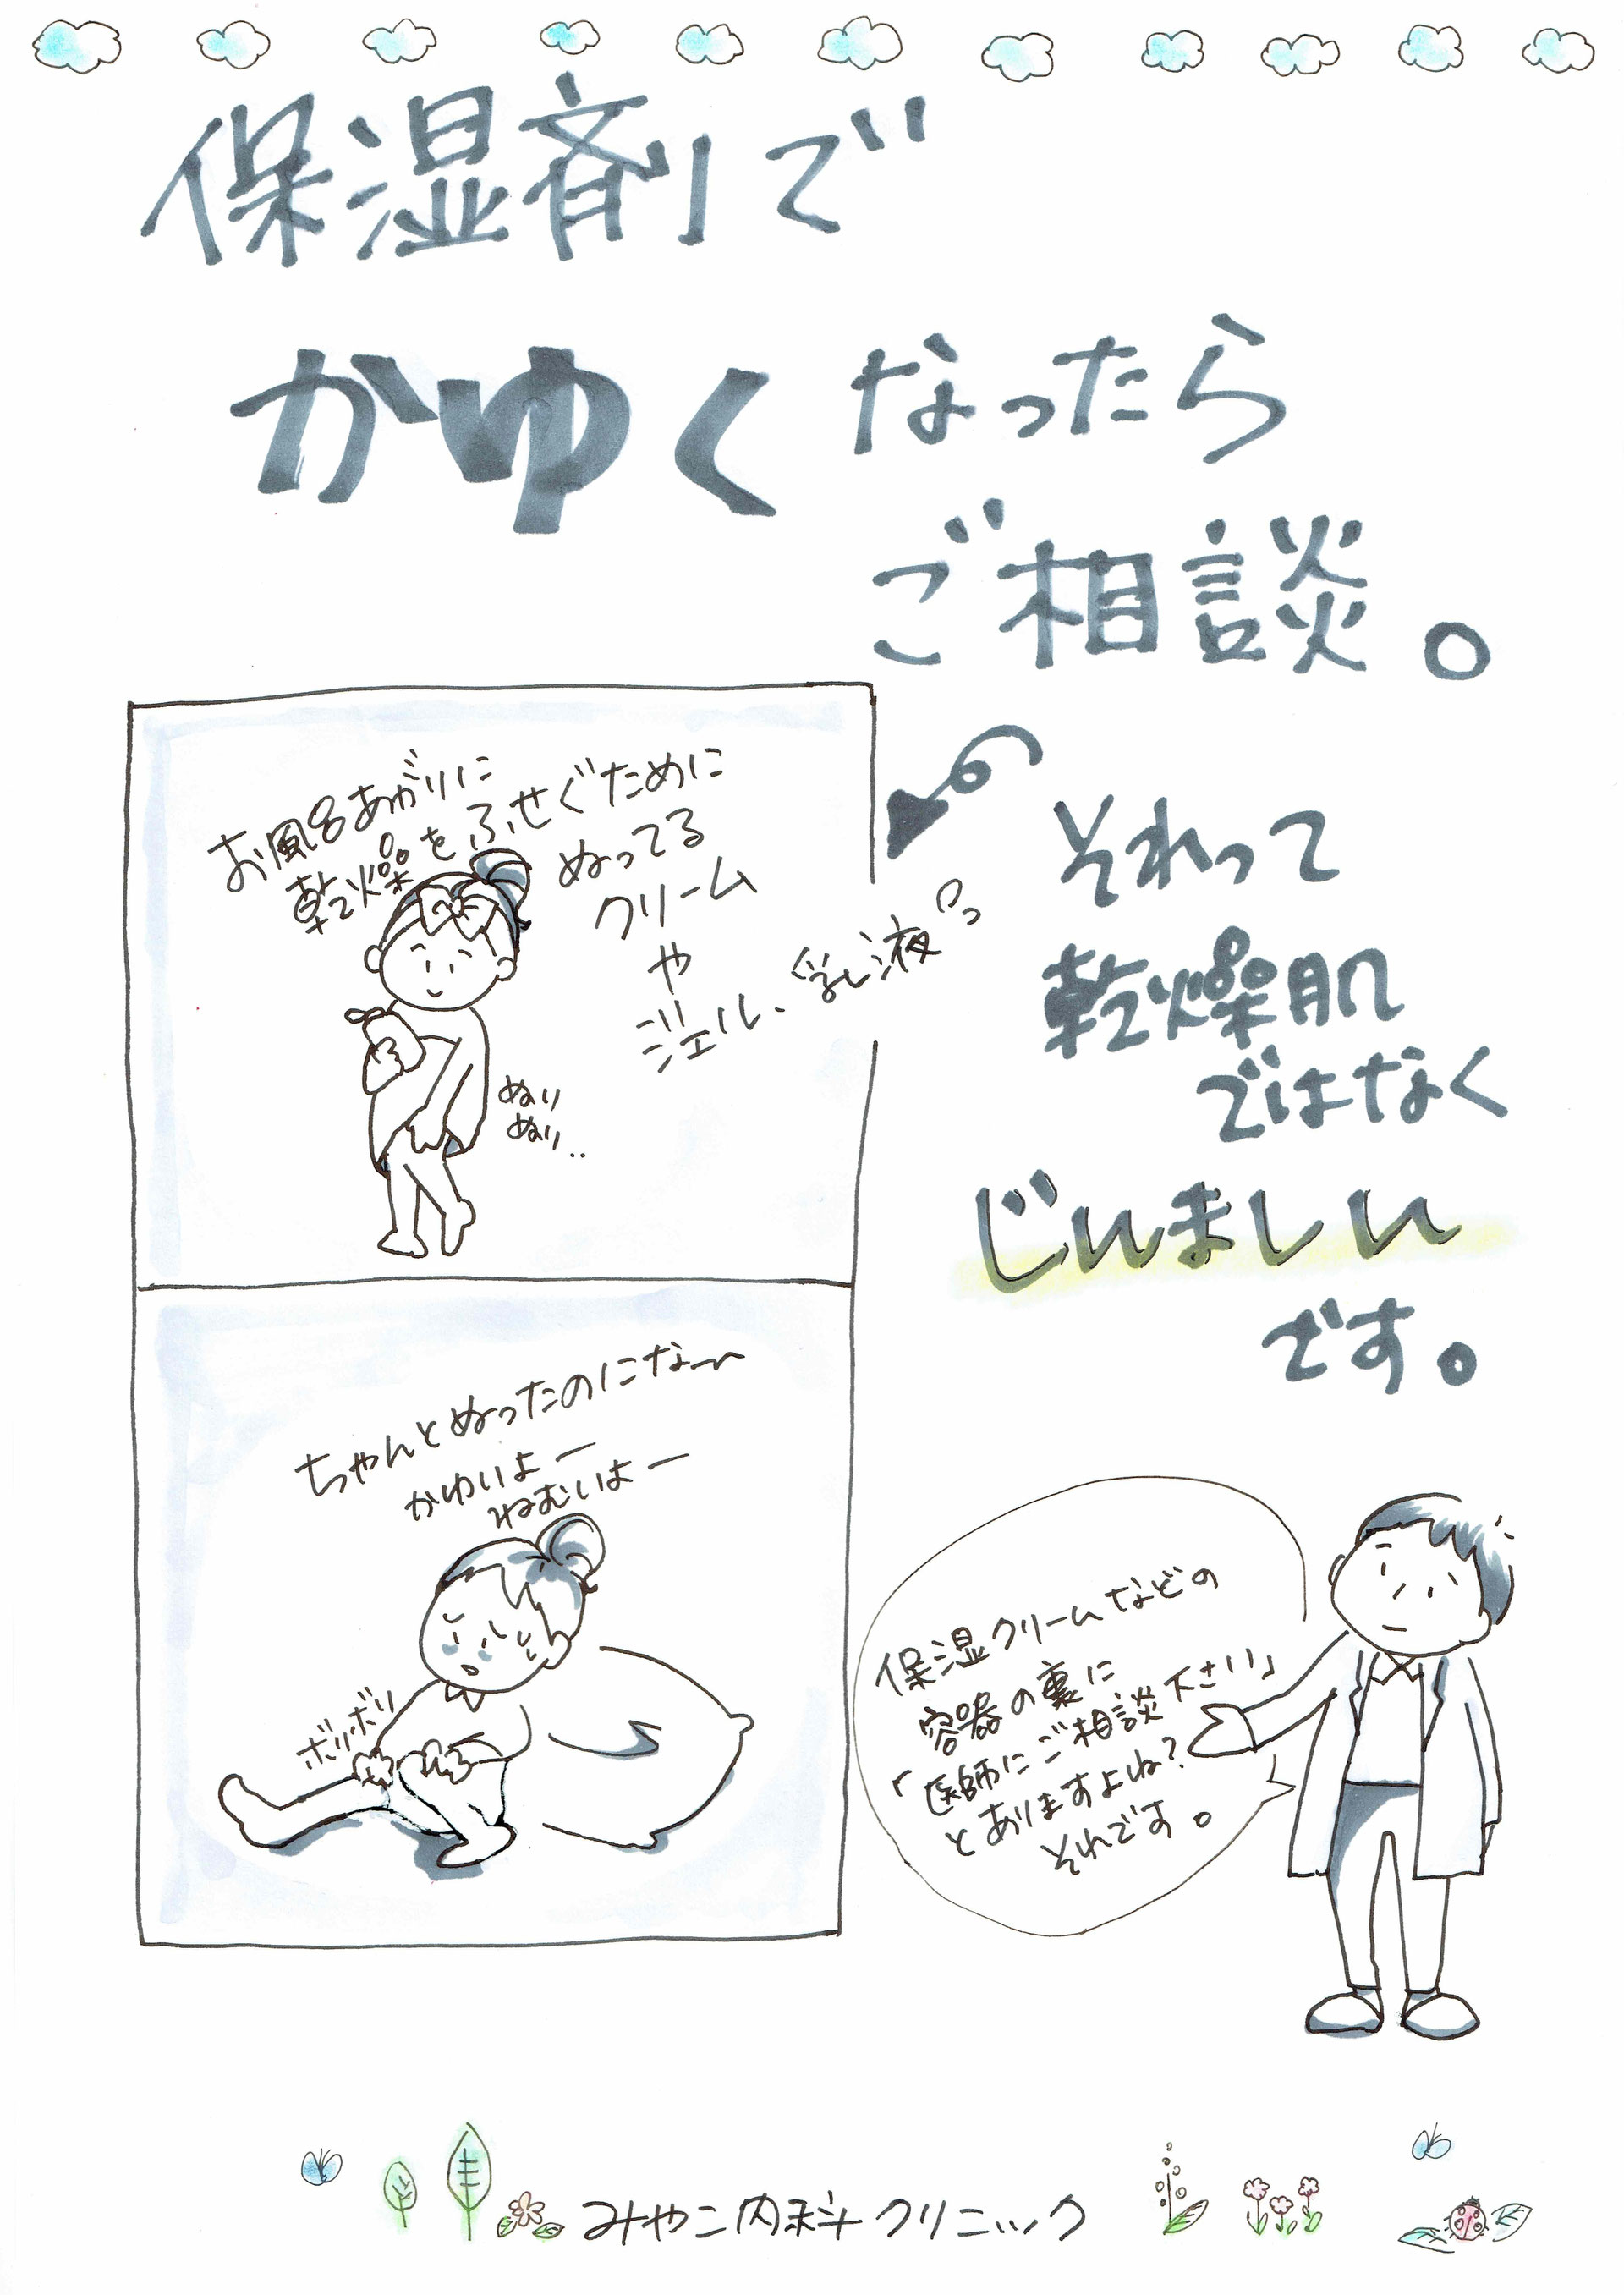 保湿剤で
かゆくなったら
ご相談。
お風呂あがりに
乾燥をふせぐために
ぬってる
クリーム
や
ジェル、乳液っ
ぬり
ぬり..
それって
乾燥肌
ではなく
じんましん
です。
ちゃんとぬったのにな〜
かゆいよー
ねむいよー
ボリボリ
保湿クリームなどの
容器の裏に
「医師にご相談下さい」
とありますよね?
それです。
みやこ内科クリニック